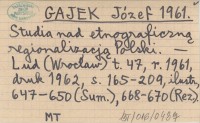 GAJEK Józef 1961.
Studia nad etnograficzną
regionalizacją Polski. —
Lud (Wrocław) t. 47, r. 1961,
druk 1962, s. 165-209, ilustr,
647-650 (Sum.), 668-670 (Rez.).
MT